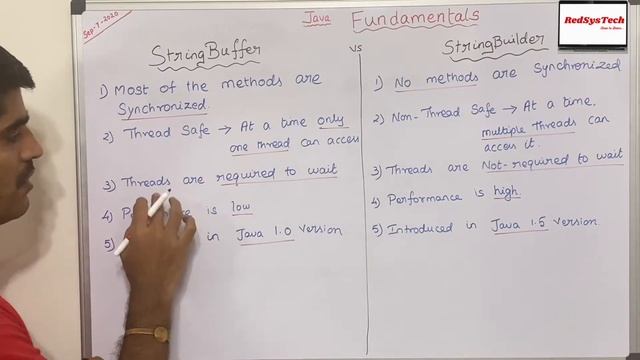 Sep-7-2020
Java Fundamentals
RedSysTech
StringBuffer
vs
StringBuilder
1) Most of the methods are
Synchronized.
2) Thread Safe → At a time only
one thread can access
3) Threads are required to wait
4) P is low
5) in Java 1.0 version
1) No methods are synchronized
2) Non-Thread Safe → At a time,
multiple threads can
access it.
3) Threads are Not-required to wait
4) Performance is high.
5) Introduced in Java 1.5 version.